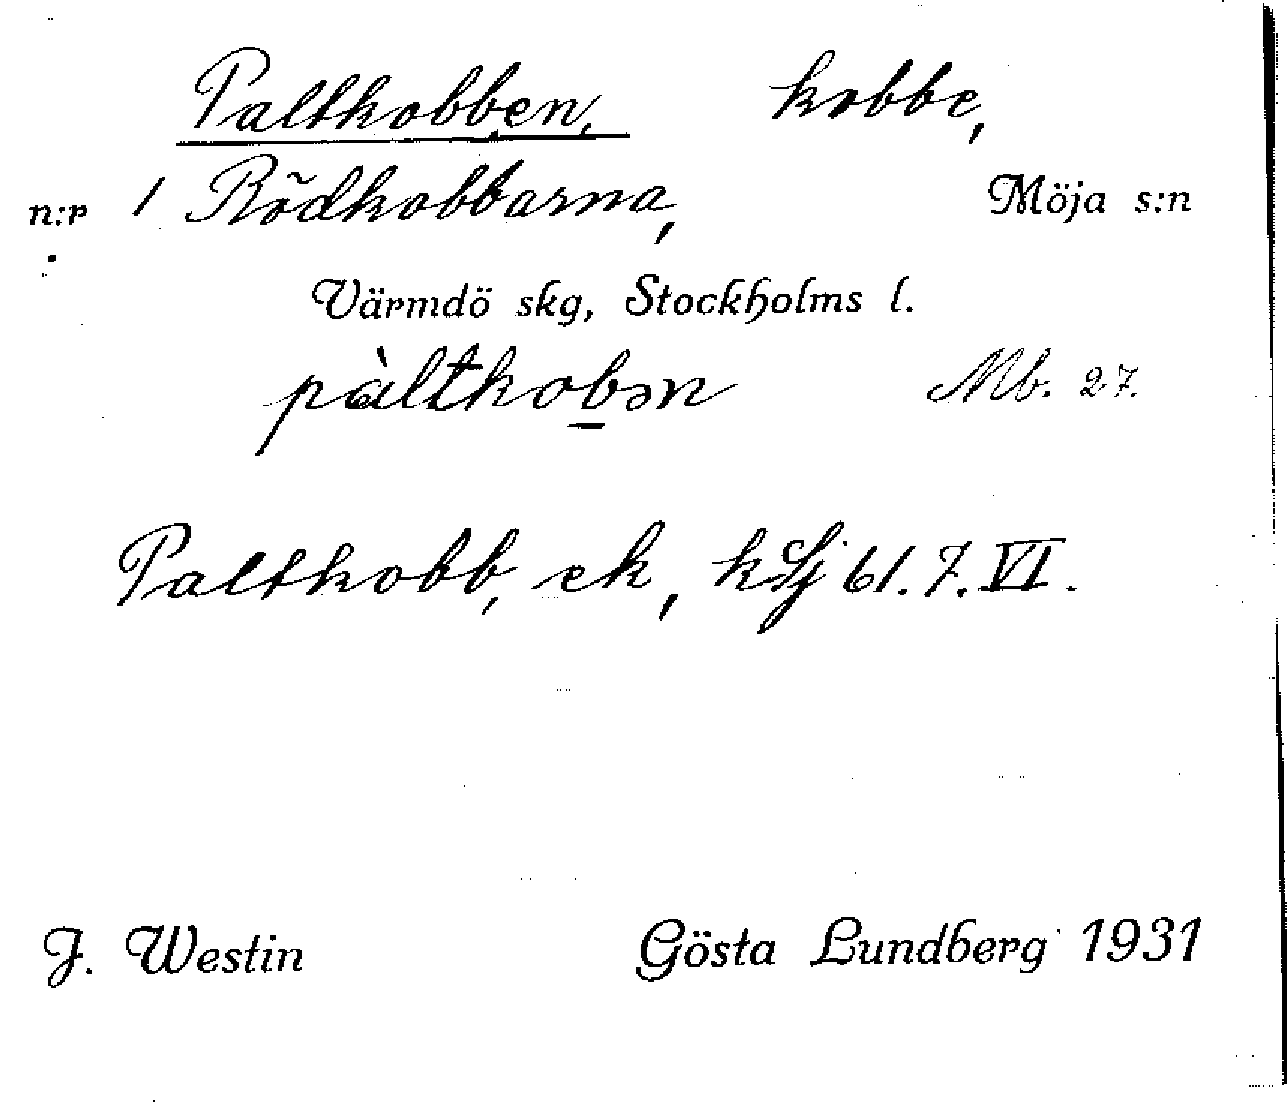 Paltkobben, kobbe,
n:r 1 Rödkobbarna, Möja s:n
Värmdö skg, Stockholms l.
pàltkobən Mb. 27.
Paltkobb, ek, hLj 61.7.VI.
J. Westin Gösta Lundberg 1931